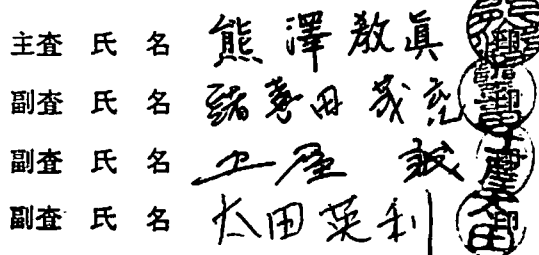 主査 氏 名 熊澤教眞
副査 氏 名 諸喜田茂充
副査 氏 名 土屋 誠
副査 氏 名 太田英利